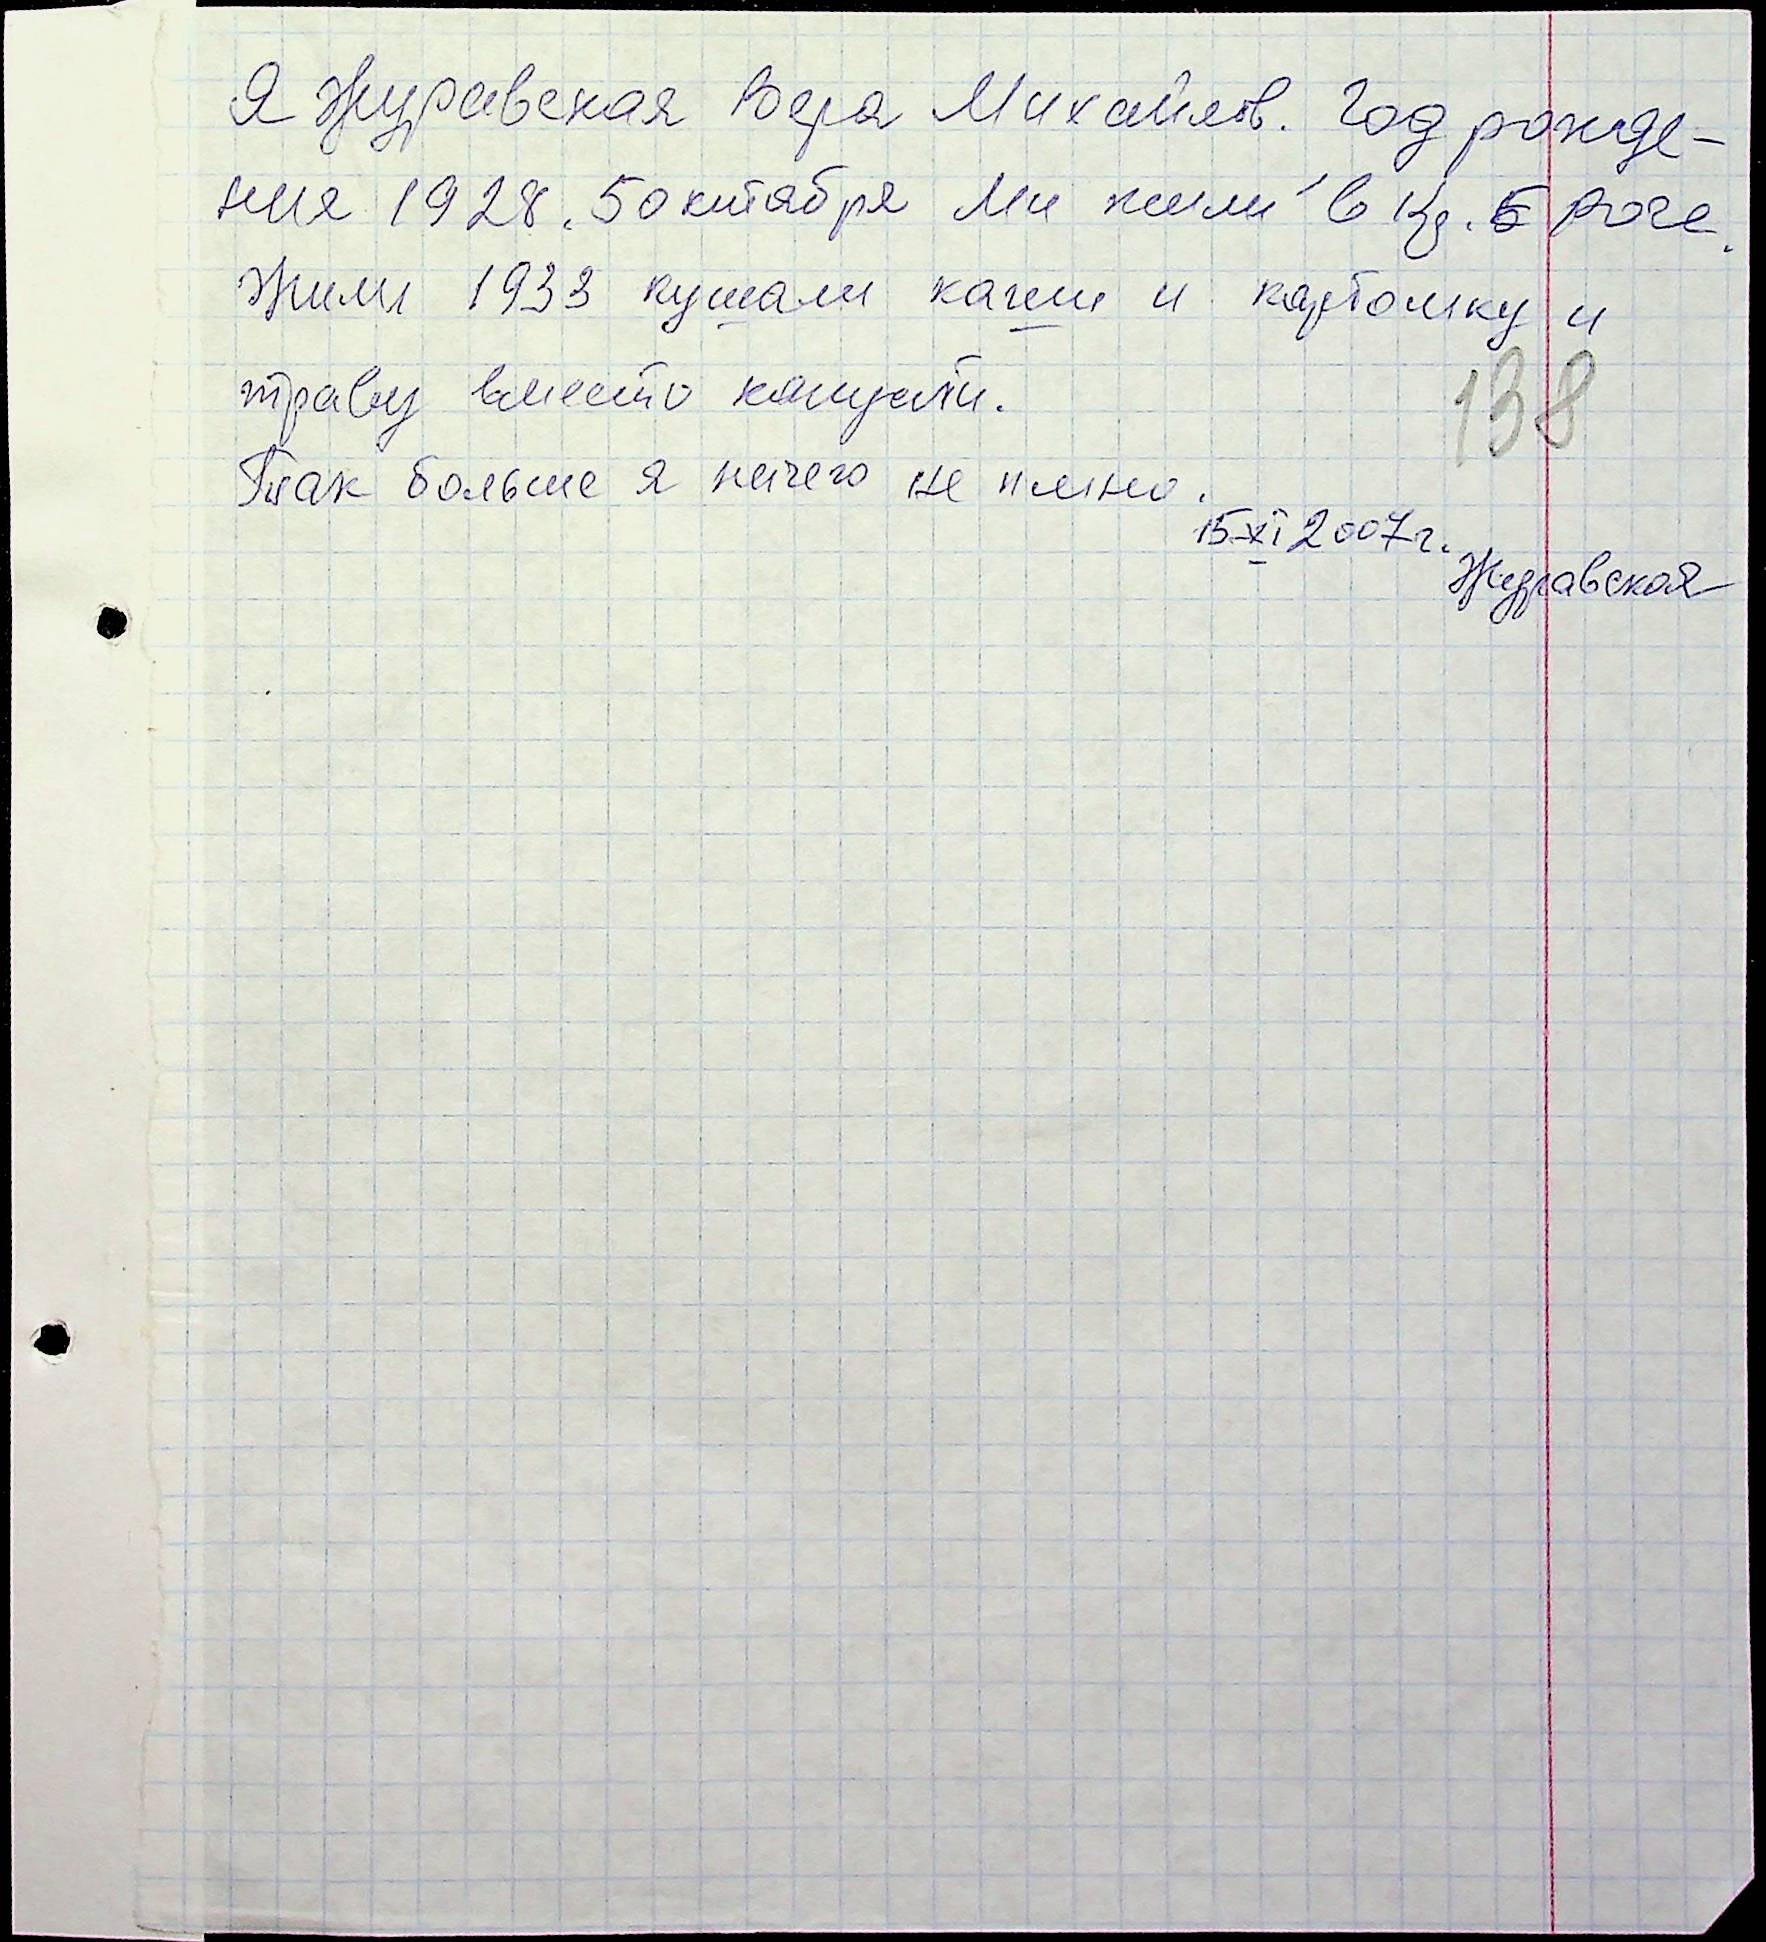 Я Журавская Вера Михайлов. Год рожде-
ния 1928. 5 октября Ми жили в Кр. Б Роге.
Жили 1933 кушали каши и картошку и
траву вместо капусти.
138
Так больше я ничего не пмню.
15 XI 2007 г.
Журавская